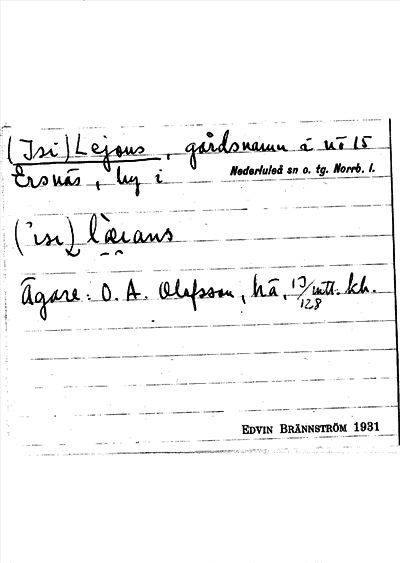 (Isi) Lejons, gårdsnamn å nö 15
Ersnäs, by i Nederluleå sn o. tg. Norrb. l.
Ägare: O. A. Olofsson, hä, 13/128 mtl. kh.
EDVIN BRÄNNSTRÖM 1931